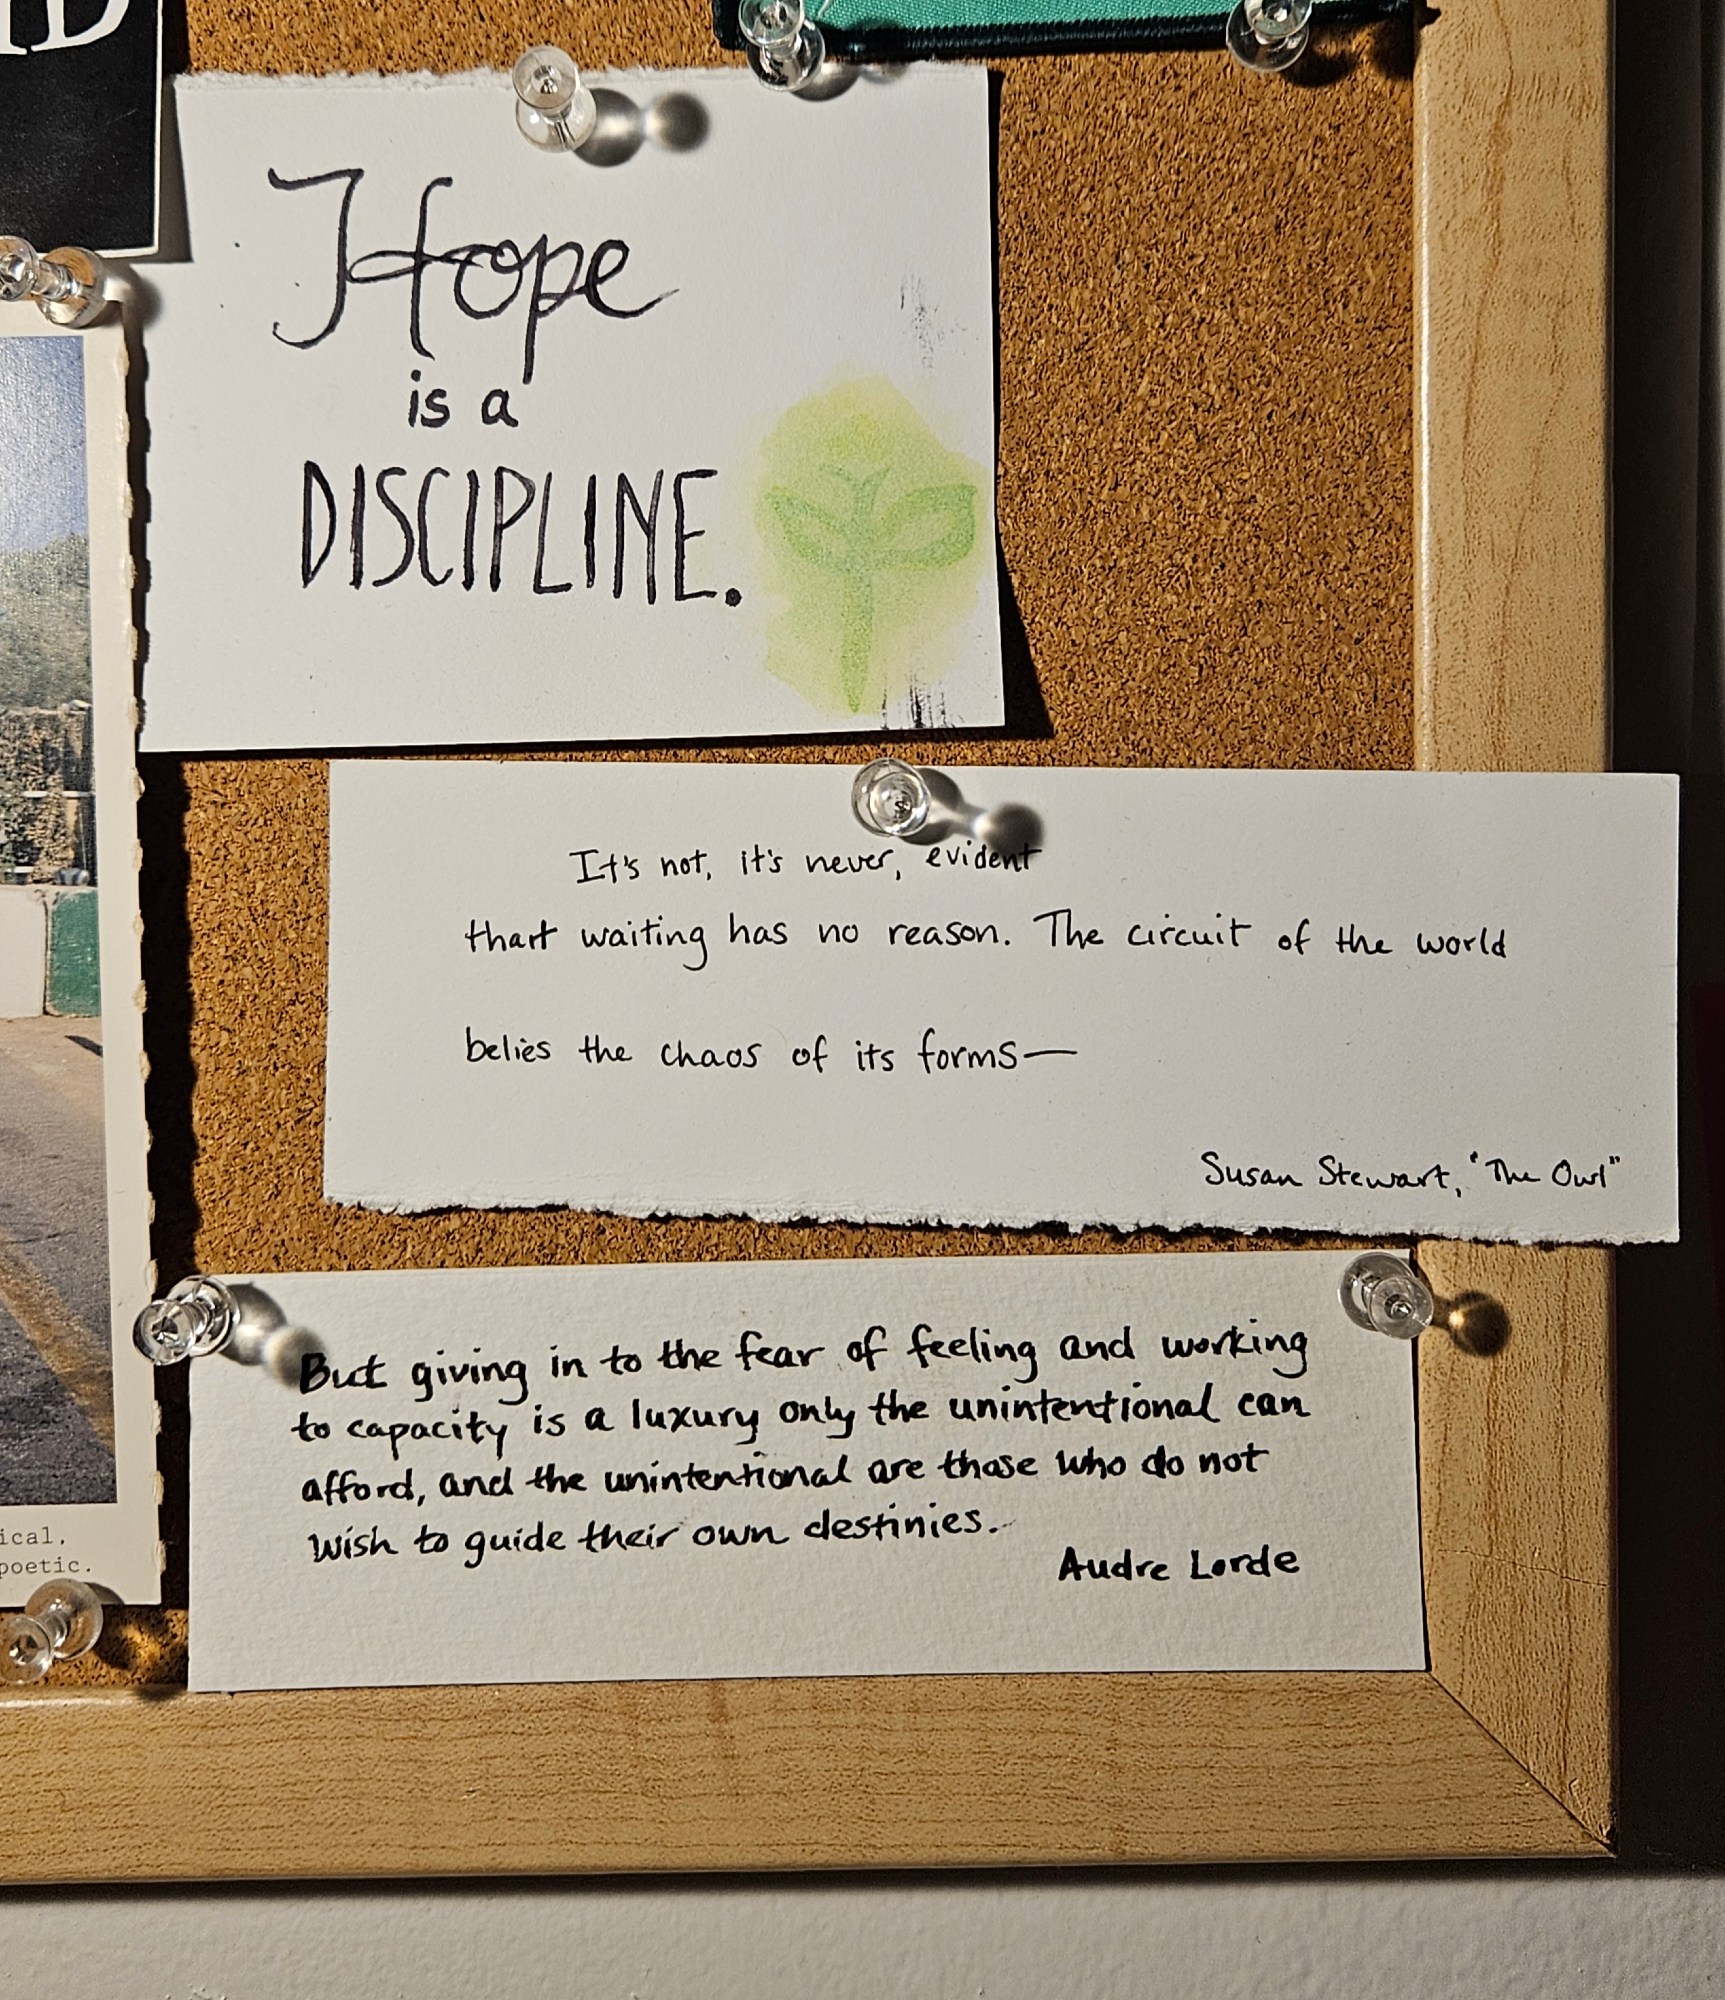 Hope
is a
DISCIPLINE.
It's not, it's never, evident
that waiting has no reason. The circuit of the world
belies the chaos of its forms—
Susan Stewart, "The Owl"
But giving in to the fear of feeling and working
to capacity is a luxury only the unintentional can
afford, and the unintentional are those who do not
wish to guide their own destinies.
Audre Lorde
ical,
poetic.